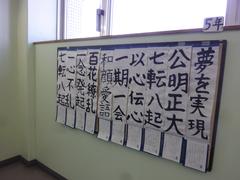 5年
夢を実現
公明正大
七転八起
以心伝心
一期一会
和顔愛語
百花繚乱
一念発起
一心不乱
七転八起